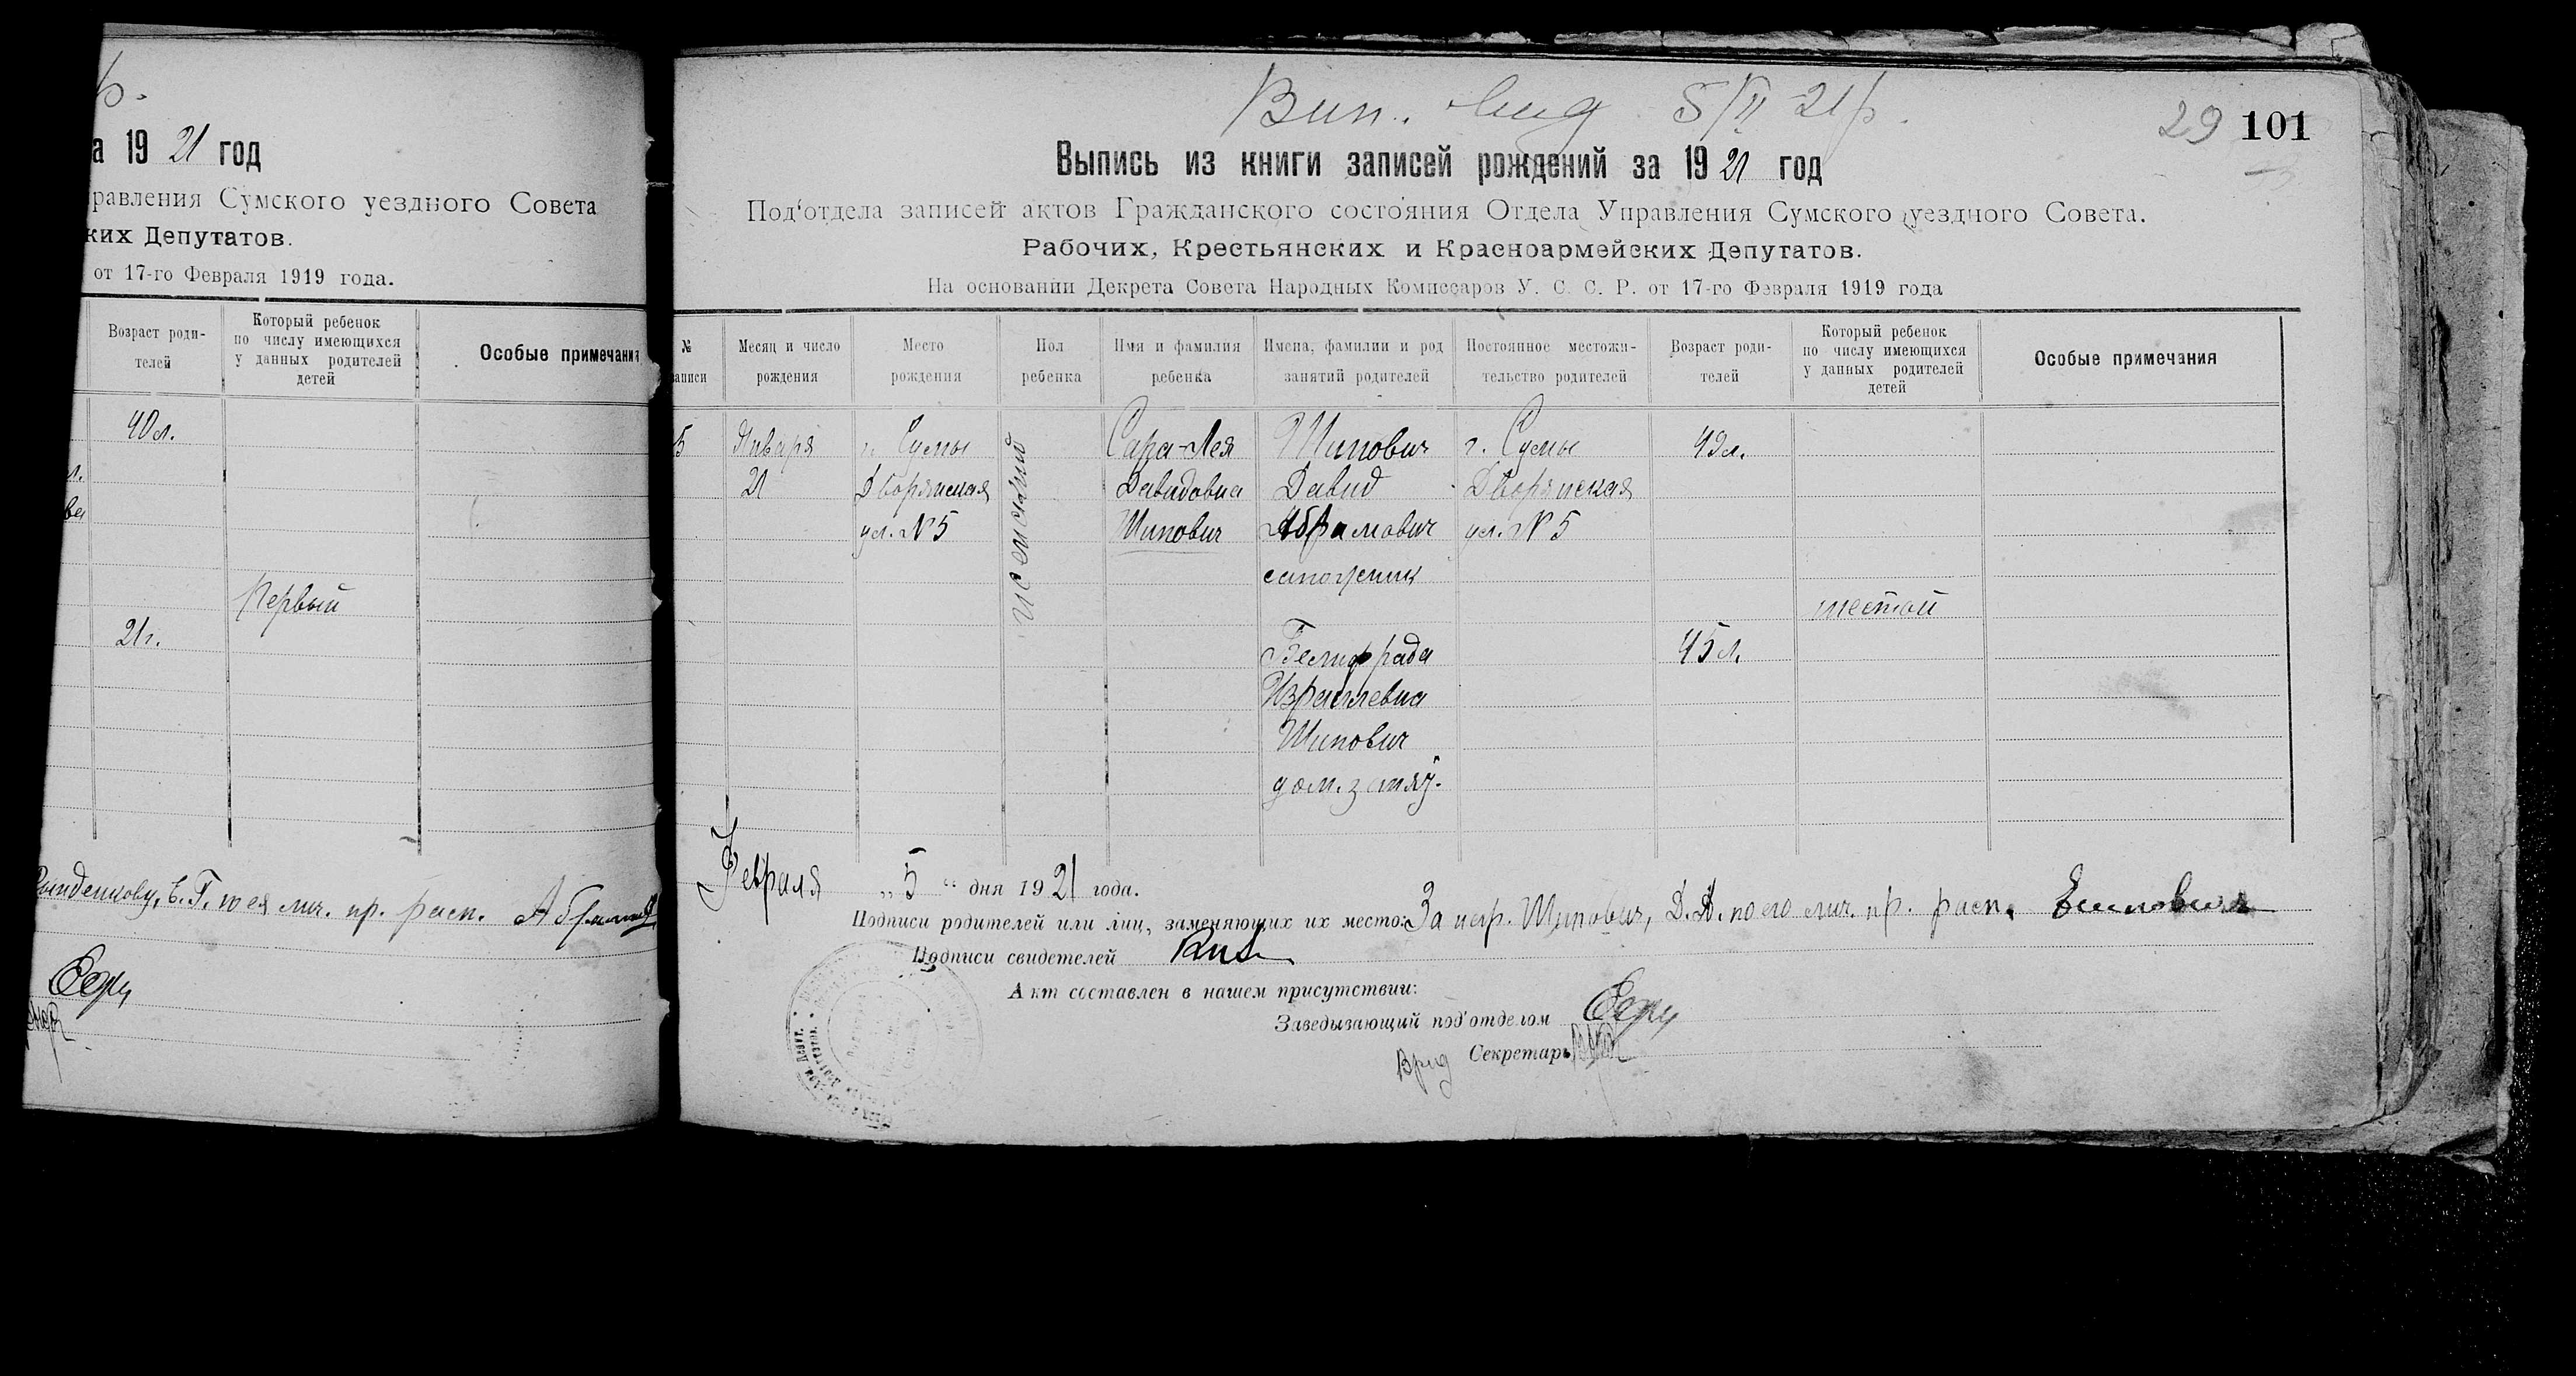 р.
а 19 21 год
равления Сумского уездного Совета
ких Депутатов.
от 17-го Февраля 1919 года.
Возраст роди-
телей
Который ребенок
по числу имеющихся
у данных родителей
детей
Особые примечания
40 л.
л.
ва
Первый
21 г.
Е. Г. по ея лич. пр. расп.
Вип. вид 5/II 21 р.
29 101
Выпись из книги записей рождений за 19 21 год
Под'отдела записей актов Гражданского состояния Отдела Управления Сумского уездного Совета.
Рабочих, Крестьянских и Красноармейских Депутатов.
На основании Декрета Совета Народных Комиссаров У. С. С. Р. от 17-го Февраля 1919 года
№
аписи
Месяц и число
рождения
Место
рождения
Пол
ребенка
Имя и фамилия
ребенка
Имена, фамилии и род
занятий родителей
Постоянное местожи-
тельство родителей
Возраст роди-
телей
Который ребенок
по числу имеющихся
у данных родителей
детей
Особые примечания
5
Января
21
г. Сумы
Дворянская
ул. № 5
женский
Сара-Лея
Давидовна
Шипович
Шипович
Давид
Абрамович
сапожник
Израилевна
Шипович
дом. занят.
г. Сумы
Дворянская
ул. № 5
49 л.
45 л.
шестой
Февраля „ 5 “ дня 19 21 года.
Подписи родителей или лиц, заменяющих их место: За негр. Шипович, Д. А. по его лич. пр. расп.
Подписи свидетелей
Акт составлен в нашем присутствии:
Заведывающий под'отделом
Врид Секретарь